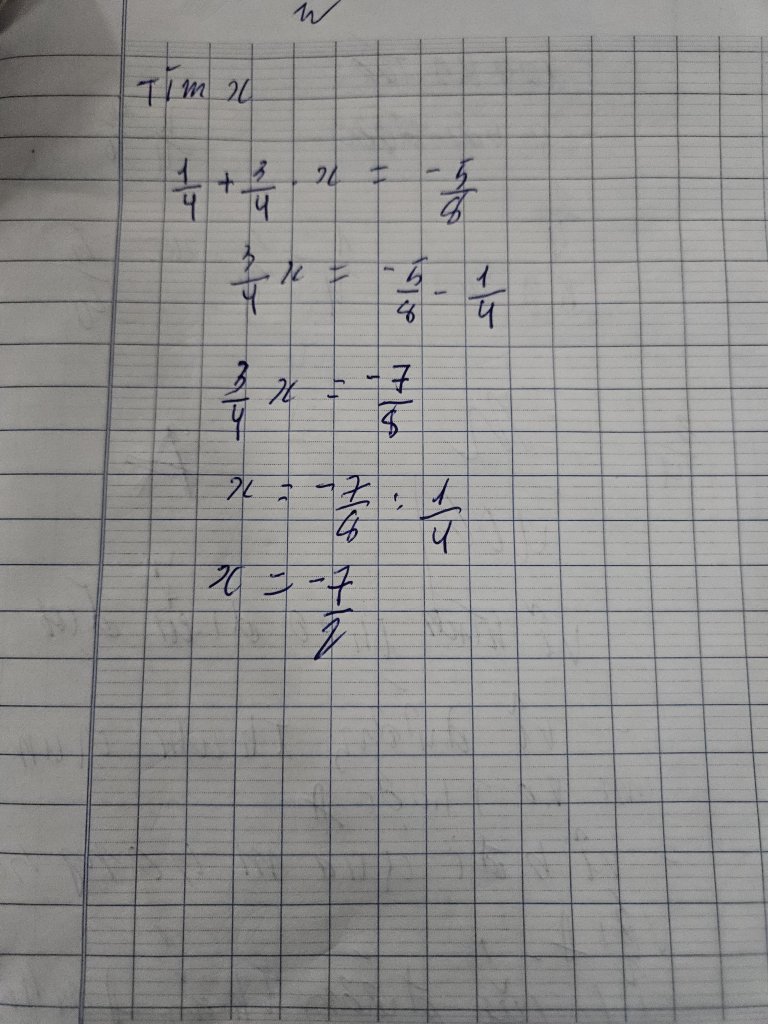 Tìm x
1/4 + 3/4 . x = -5/8
3/4 x = -5/8 - 1/4
3/4 x = -7/8
x = -7/8 : 1/4
x = -7/2